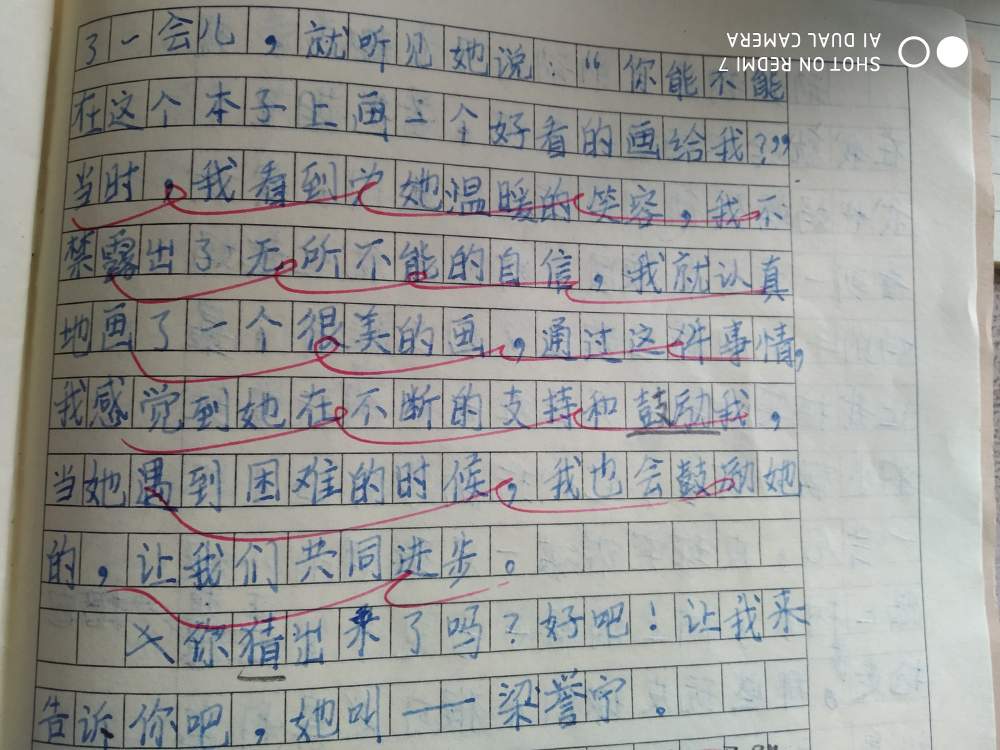 了一会儿，就听见她说：“你能不能
在这个本子上画一个好看的画给我？”
当时，我看到她温暖的笑容，我不
禁露出了无所不能的自信，我就认真
地画了一个很美的画，通过这件事情，
我感觉到她在不断的支持和鼓励我，
当她遇到困难的时候，我也会鼓励她
的，让我们共同进步。
你猜出来了吗？好吧！让我来
告诉你吧，她叫——梁誉宁。
SHOT ON REDMI 7
AI DUAL CAMERA